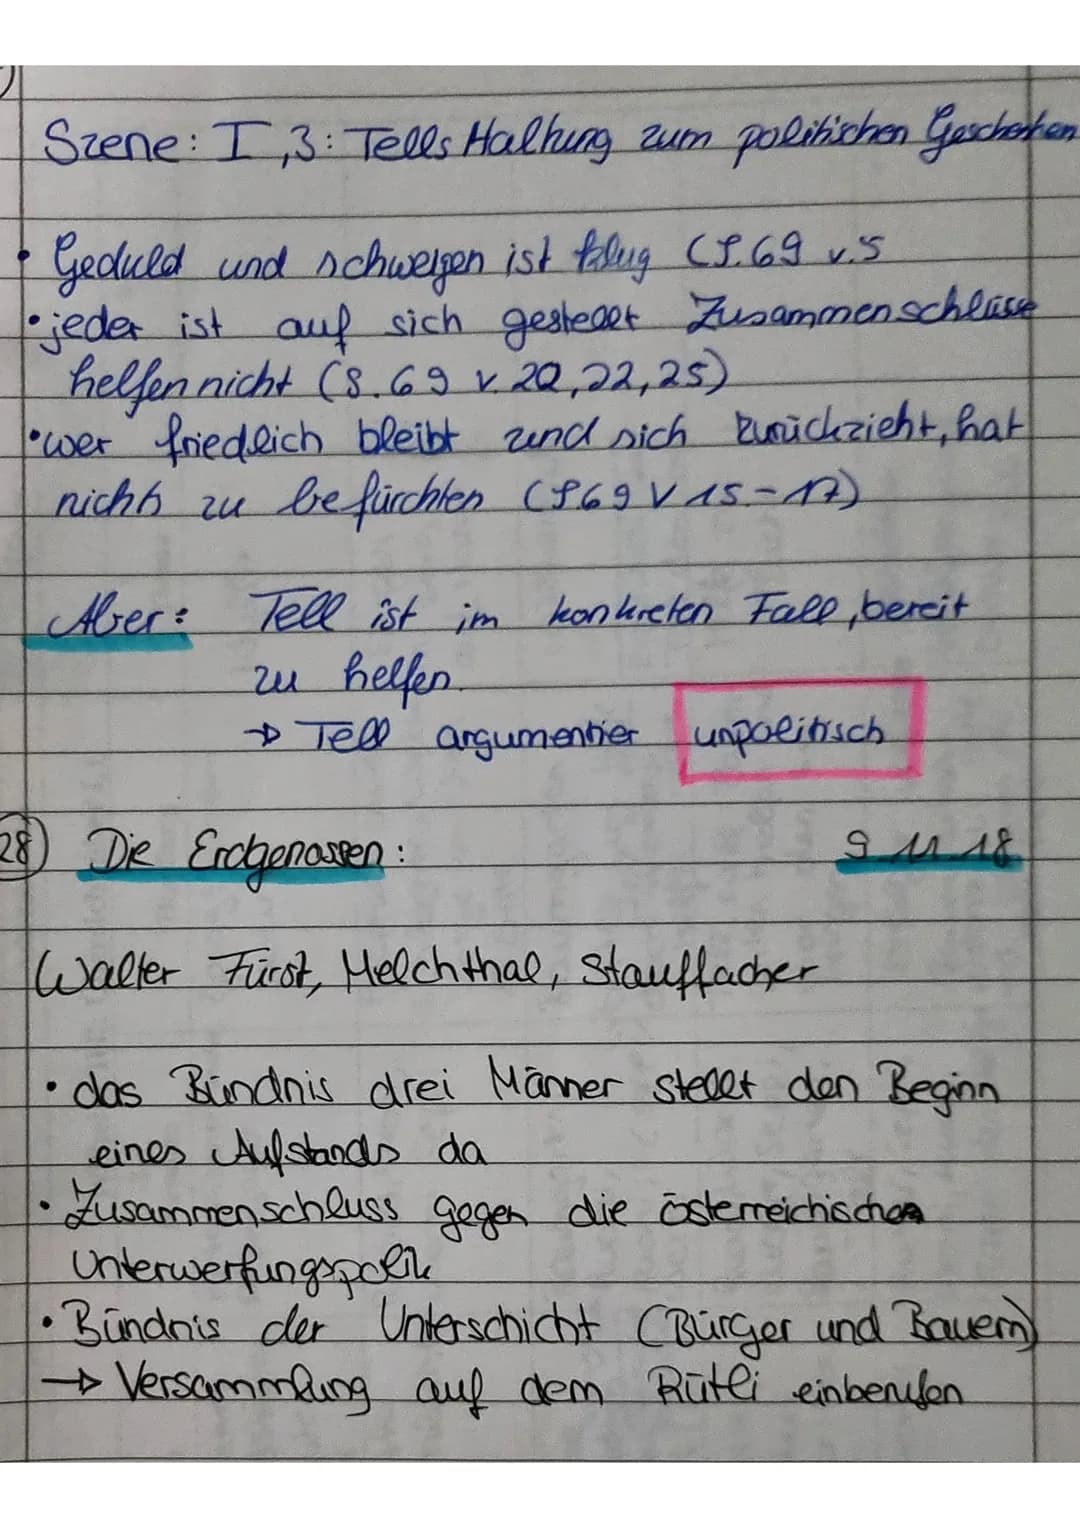 Szene: I,3: Tells Haltung zum politischen Geschehen
• Geduld und schweigen ist klug (S.69 v.5
• jeder ist auf sich gestellt Zusammenschlüsse
helfen nicht (S.69 v.20,22,25)
• wer friedlich bleibt und sich zurückzieht, hat
nichts zu befürchten (S.69 V 15-17)
Aber: Tell ist im konkreten Fall, bereit
zu helfen.
→ Tell argumentier unpolitisch
28) Die Eidgenossen: 9.11.18
Walter Fürst, Melchthal, Stauffacher
• das Bündnis drei Männer stellt den Beginn
eines Aufstands da
• Zusammenschluss gegen die österreichischen
Unterwerfungspolik
• Bündnis der Unterschicht (Bürger und Bauern)
→ Versammlung auf dem Rütli einberufen